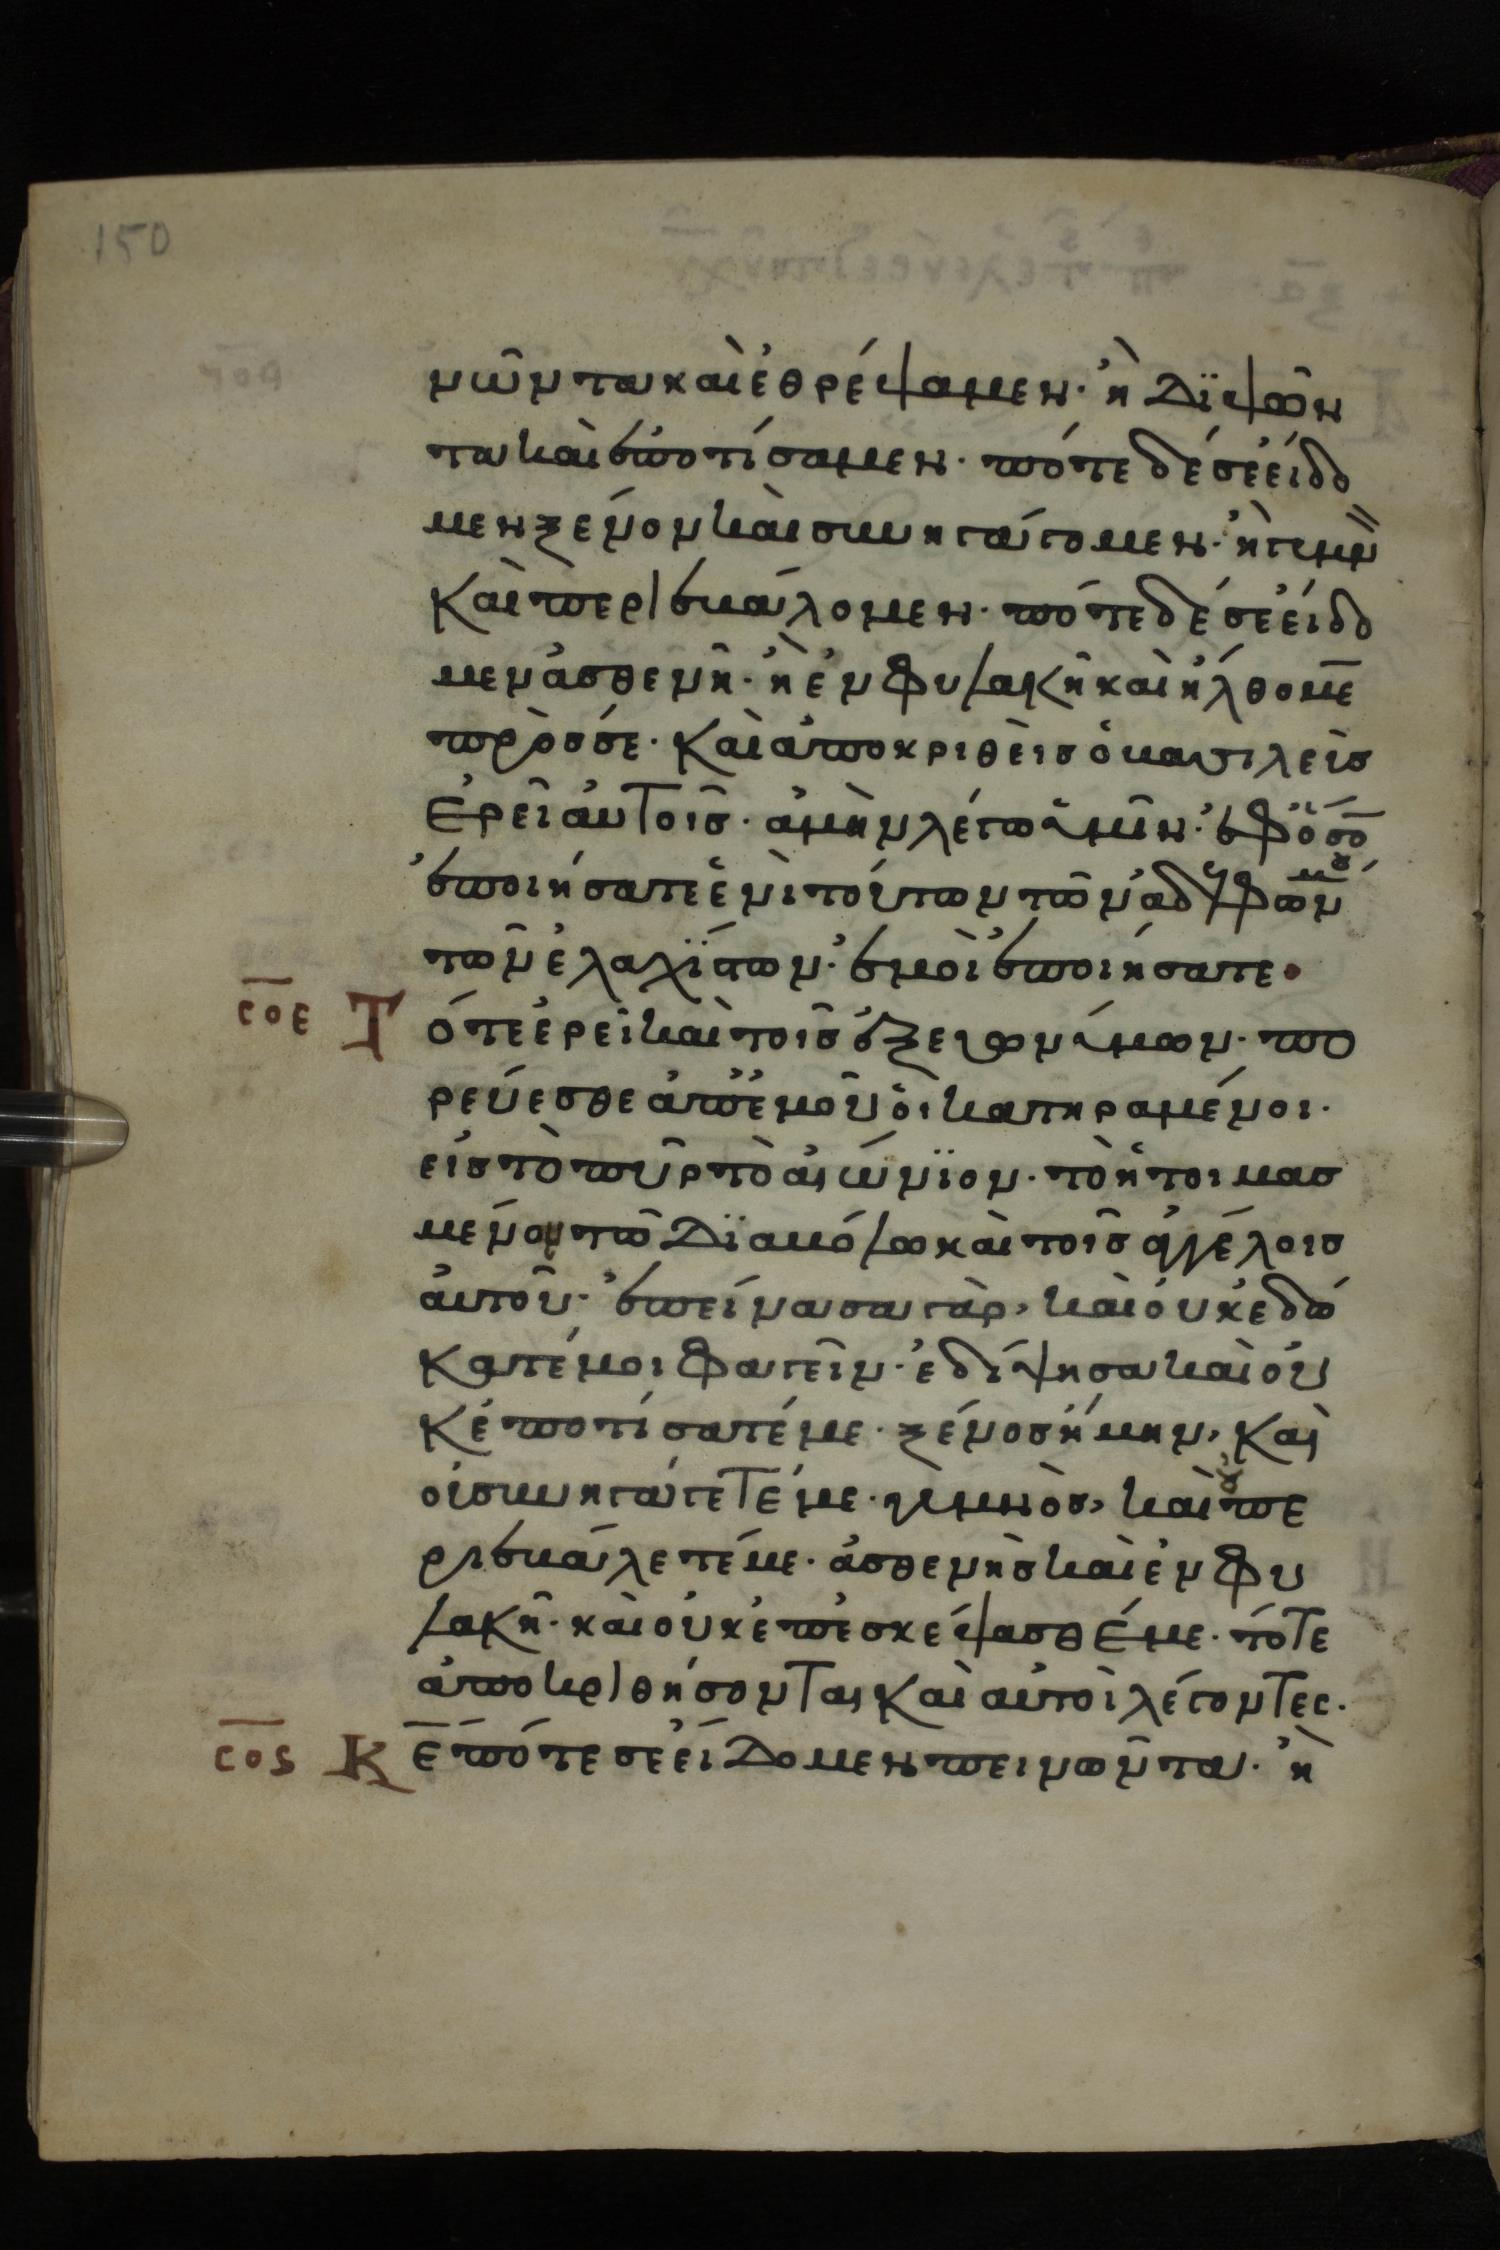 150
νῶντα καὶ ἐθρέψαμεν· ἢ διψῶν
τα καὶ ἐποτίσαμεν· πότε δέ σε εἴδο
μεν ξένον καὶ συνηγάγομεν· ἢ γυμν
καὶ περιεβάλομεν· πότε δέ σε εἴδο
μεν ἀσθενῆ· ἢ ἐν φυλακῆ καὶ ἤλθομε
πρὸς σέ· καὶ ἀποκριθεὶς ὁ βασιλεὺς
ἐρεῖ αὐτοῖς· ἀμὴν λέγω ὑμῖν· ἐφ ὅσο
ἐποιήσατε ἑνὶ τούτων τῶν ἀδελφῶν μου
τῶν ἐλαχίστων· ἐμοὶ ἐποιήσατε·
σοε Τ ότε ἐρεῖ καὶ τοῖς ἐξ εὐωνύμων· πο
ρεύεσθε ἀπ ἐμοῦ οἱ κατηραμένοι·
εἰς τὸ πῦρ τὸ αἰώνιον· τὸ ἡτοιμασ
μένον τῶ διαβόλω καὶ τοῖς ἀγγέλοις
αὐτοῦ· ἐπείνασα γὰρ, καὶ οὐκ ἐδώ
κατέ μοι φαγεῖν· ἐδίψησα καὶ οὐ
κ ἐποτίσατέ με· ξένος ἤμην, καὶ
οὐ συνηγάγετέ με· γυμνὸς, καὶ οὐ πε
ριεβάλετέ με· ἀσθενὴς καὶ ἐν φυ
λακῆ· καὶ οὐκ ἐπεσκέψασθέ με· τότε
ἀποκριθήσονται καὶ αὐτοὶ λέγοντες·
σοϛ Κ ε πότε σε εἴδομεν πεινῶντα· ἢ